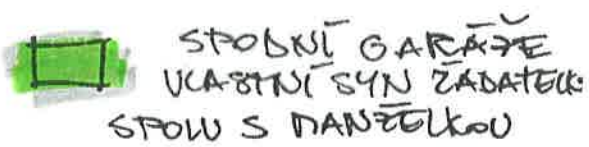 SPODNÍ GARÁŽE
VLASTNÍ SYN ŽADATELK
SPOLU S MANŽELKOU